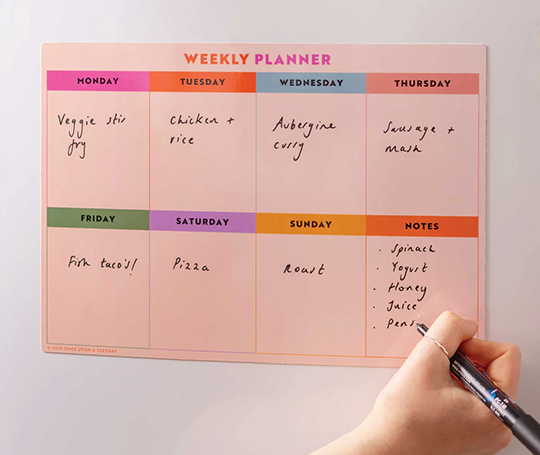 WEEKLY PLANNER
MONDAY
Veggie stir
fry
TUESDAY
Chicken +
rice
WEDNESDAY
Aubergine
curry
THURSDAY
Sausage +
mash
FRIDAY
Fish taco's!
SATURDAY
Pizza
SUNDAY
Roast
NOTES
· Spinach
· Yogurt
· Honey
· Juice
· Pens
© 2024 ONCE UPON A TUESDAY